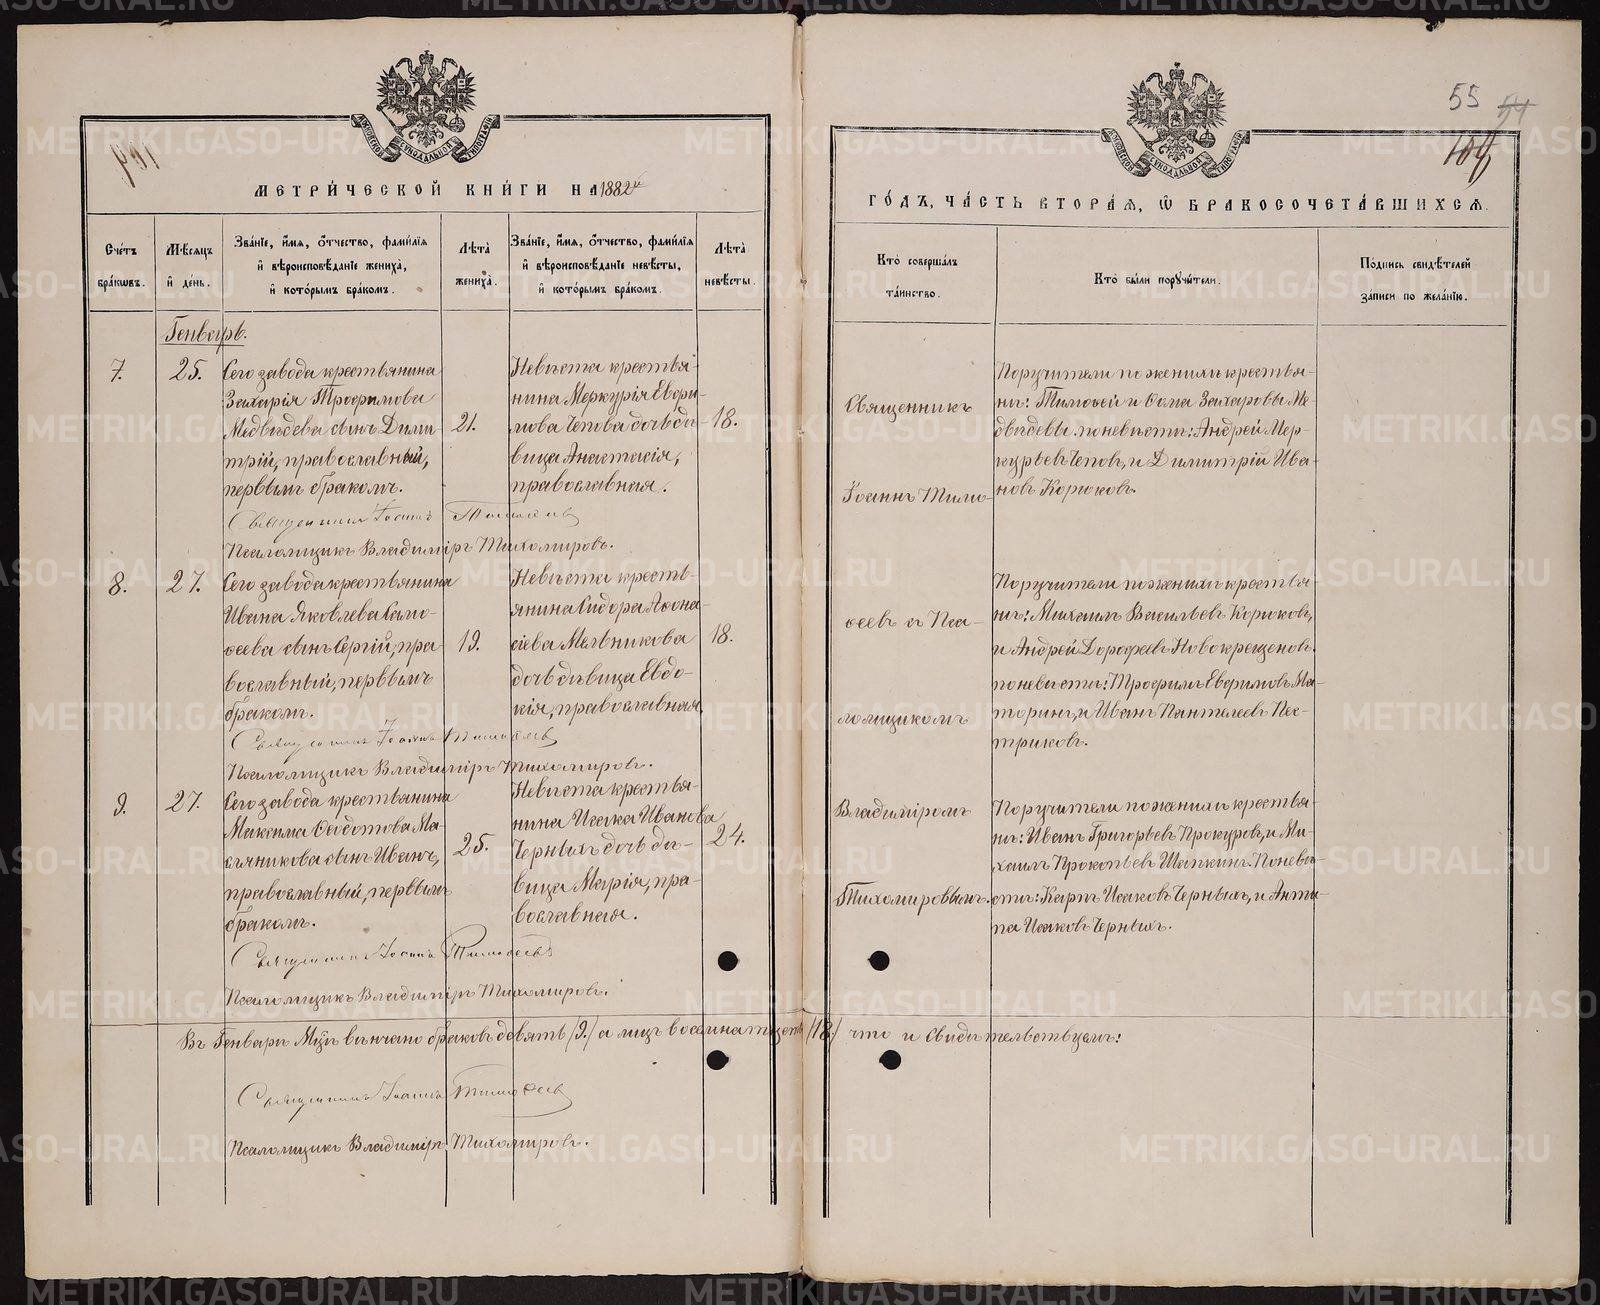 МЕТРИ́ЧЕСКОЙ КНИ́ГИ НА 1882й
Сче́тъ бра́кѡвъ.
Мѣ́сяцъ и҆ де́нь.
Зва́нїе, и҆́мя, ѻ҆́тчество, фами́лїя и҆ вѣроисповѣ́данїе жениха̀, и҆ кото́рымъ бра́комъ.
Лѣта̀ жениха̀.
Зва́нїе, и҆́мя, ѻ҆́тчество, фами́лїя и҆ вѣроисповѣ́данїе невѣ́сты, и҆ кото́рымъ бра́комъ.
Лѣта̀ невѣ́сты.
Генварь.
7.
25.
Сего завода крестьянина
Захарія Трофимова
Медвѣдева сынъ Дими-
трій, православный,
первымъ бракомъ.
21.
Невѣста крестья-
нина Меркурія Евфи-
мова Чепова дочь дѣ-
вица Анастасія,
православная.
18.
Священникъ Іоаннъ Тимоѳеевъ
Псаломщикъ Владиміръ Тихомировъ.
8.
27.
Сего завода крестьянина
Ивана Яковлева Само-
ѳеева сынъ Сергій, пра-
вославный, первымъ
бракомъ.
19.
Невѣста кресть-
янина Сидора Аѳона-
сіева Мельникова
дочь дѣвица Евдо-
кія, православная
18.
Священникъ Іоаннъ Тимоѳеевъ
Псаломщикъ Владиміръ Тихомировъ.
9.
27.
Сего завода крестьянина
Максима Ѳеодотова Ма-
сѣчникова сынъ Иванъ,
православный, первымъ
бракомъ.
25.
Невѣста крестья-
нина Исака Иванова
Черныхъ дочь дѣ-
вица Марія, пра-
вославная.
24.
Священникъ Іоаннъ Тимоѳеевъ
Псаломщикъ Владиміръ Тихомировъ.
Въ Генварѣ Мцѣ вѣнчано браковъ девять /9./ а лицъ восемнатцеть /18./ что и свидѣтельствуемъ:
Священникъ Іоаннъ Тимоѳеевъ
Псаломщикъ Владиміръ Тихомировъ.
55 54
109
ГО́ДЪ, ЧА́СТЬ ВТОРА́Я, Ѡ҆ БРАКОСОЧЕТА́ВШИХСЯ.
Кто̀ соверша́лъ та́инство.
Кто̀ бы́ли порꙋчи́тели.
По́дпись свидѣ́телей за́писи по жела́нїю.
Священникъ
Іоаннъ Тимо-
ѳеевъ съ Пса-
ломщикомъ
Владиміромъ
Тихомировымъ.
Поручители по женихѣ крестья-
нѣ: Тимоѳей и Ѳома Захаровы Ме-
двѣдевы. по невѣстѣ: Андрей Мер-
курьевъ Чеповъ, и Димитрій Ива-
новъ Корюковъ.
Поручители по женихѣ крестья-
нѣ: Михаилъ Васильевъ Корюковъ,
и Андрей Дорофеевъ Новокрещеновъ.
по невѣстѣ: Трофимъ Евфимовъ Ма-
торинъ, и Иванъ Пантелеевъ Пес-
триковъ.
Поручители по женихѣ крестья-
нѣ: Иванъ Григорьевъ Прокуровъ, и Ми-
хаилъ Прокопьевъ Шапкинъ. По невѣ-
стѣ: Карпъ Исаковъ Черныхъ, и Анти-
па Исаковъ Черныхъ.
METRIKI.GASO-URAL.RU